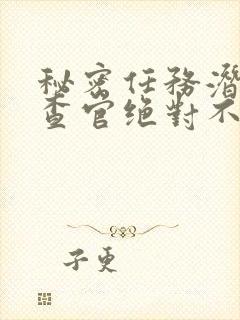 秘密任務潛
查官绝對不
子更